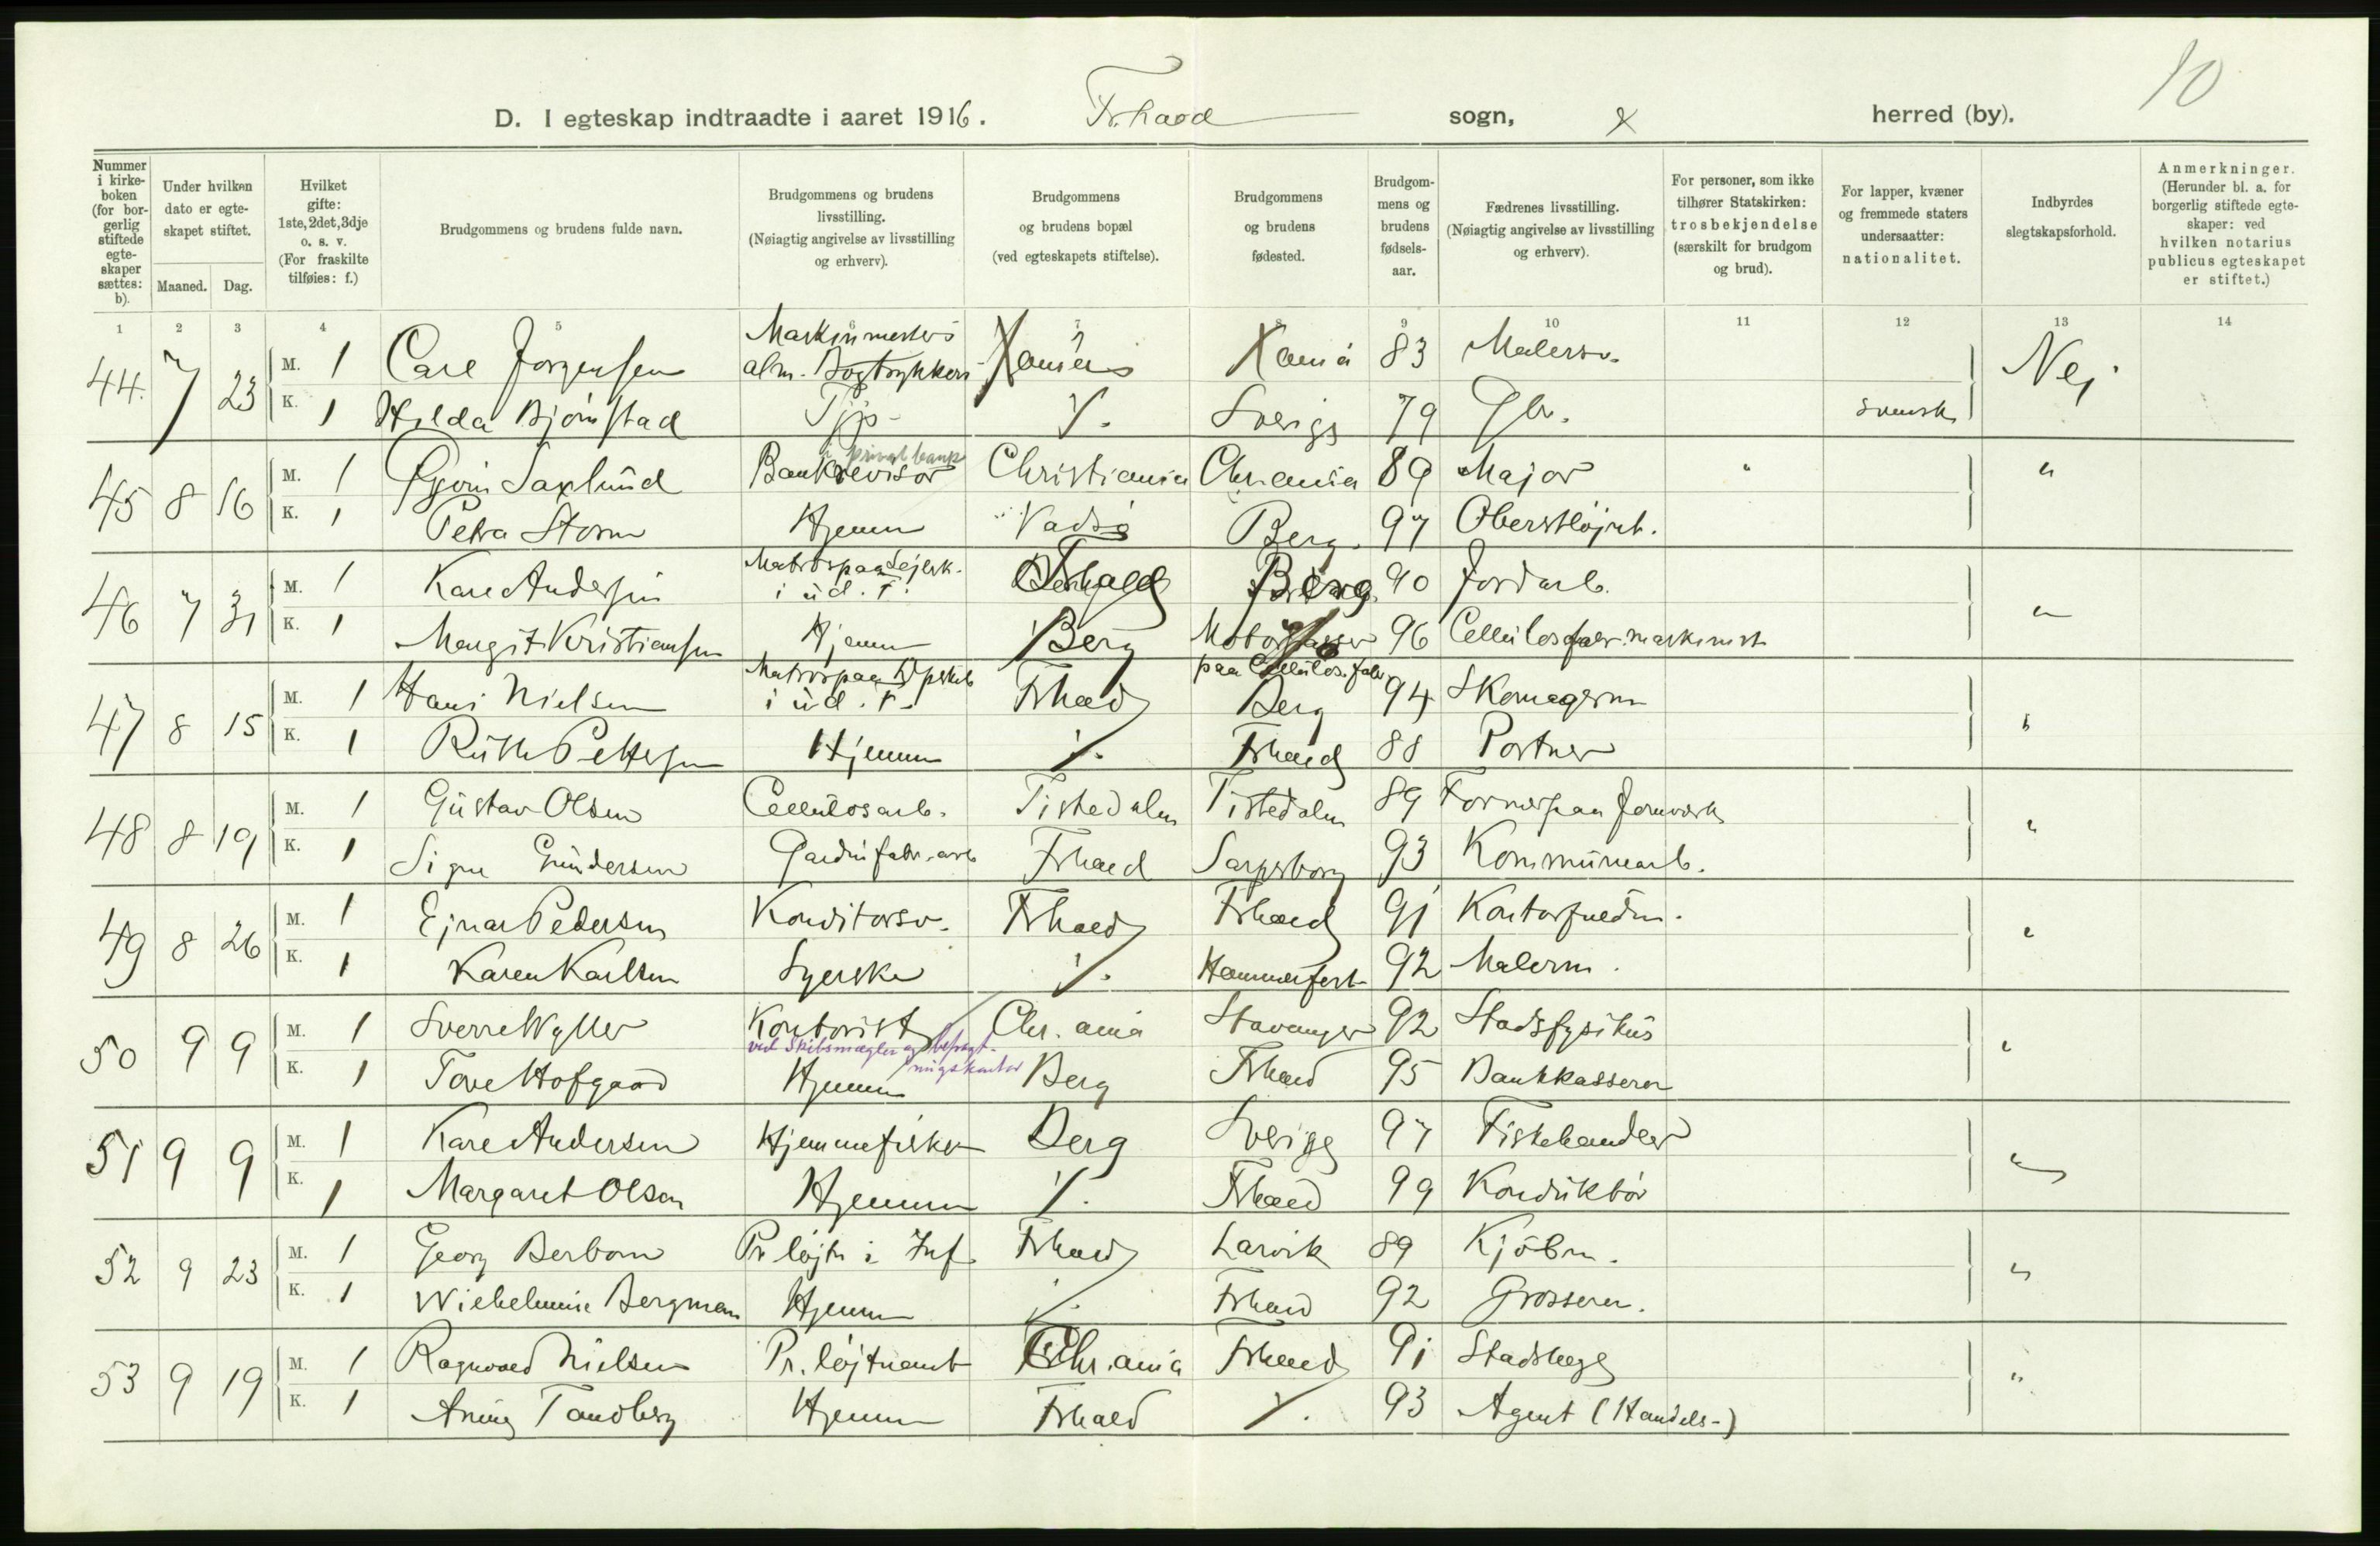 10
D. I egteskap indtraadte i aaret 1916. Fr.hald sogn, herred (by).
Nummer i kirkeboken (for borgerlig stiftede egteskaper sættes: b).
Under hvilken dato er egteskapet stiftet.
Maaned. Dag.
Hvilket gifte: 1ste, 2det, 3dje o. s. v. (For fraskilte tilføies: f.)
Brudgommens og brudens fulde navn.
Brudgommens og brudens livsstilling. (Nøiagtig angivelse av livsstilling og erhverv).
Brudgommens og brudens bopæl (ved egteskapets stiftelse).
Brudgommens og brudens fødested.
Brudgommens og brudens fødselsaar.
Fædrenes livsstilling. (Nøiagtig angivelse av livsstilling og erhverv).
For personer, som ikke tilhører Statskirken: trosbekjendelse (særskilt for brudgom og brud).
For lapper, kvæner og fremmede staters undersaatter: nationalitet.
Indbyrdes slegtskapsforhold.
Anmerkninger. (Herunder bl. a. for borgerlig stiftede egteskaper: ved hvilken notarius publicus egteskapet er stiftet.)
1 2 3 4 5 6 7 8 9 10 11 12 13 14
44. 7 23 M. 1 Carl Jørgensen Kania 83 Malersv. Nej
K. 1 Hilda Bjørnstad ./. Sverige 79 Gbr. svensk
45 8 16 M. 1 Saxlund Bankrevisor i privatbank Christiania Chr.ania 89 Major "
K. 1 Petra Storm Hjemme Vadsø Berg. 97 Oberstløjtn.
46 7 31 M. 1 Kare Andersen Matros paa Sejlsk. i ud. f. Fr.hald Berg 90 Jordarb. "
K. 1 Margit Kristiansen Hjemme Berg 96 Cellulosfabr. maskinist
47 8 15 M. 1 Hans Nielsen Matros paa i ud. f. Fr.hald Berg 94 Skomagerm "
K. 1 Ruth Pettersen Hjemme ./. Fr.hald 88 Portner
48 8 19 M. 1 Gustav Olsen Cellulosarb. Tistedalen Tistedalen 89 Former paa Jernverk "
K. 1 Signe Gundersen Gardinfabr. arb Fr.hald Sarpsborg 93 Kommunearb.
49 8 26 M. 1 Ejnar Pedersen Konditorsv. Fr.hald Fr.hald 91 Kontorfuldm. "
K. 1 Karen Karlsen Syerske ./. Hammerfest 92 Malerm.
50 9 9 M. 1 Sverre Wyller Kontorist ved Skibsmægler og befragtningskontor Chr.ania Stavanger 92 Stadsfysikus "
K. 1 Tove Hofgaard Hjemme Berg Fr.hald 95 Bankkasserer
51 9 9 M. 1 Kare Andersen Hjemmefisker Berg Sverige 97 Fiskehandler "
K. 1 Margaret Olsen Hjemme ./. Fr.hald 99 Konduktør
52 9 23 M. 1 Georg Berbom Pr. løjtn i Inf. Fr.hald Larvik 89 Kjøbm. "
K. 1 Wilhelmine Bergman Hjemme ./. Fr.hald 92 Grosserer.
53 9 19 M. 1 Ragnvald Nielsen Pr. løjtnant Chr.ania Fr.hald 91 Stadslæge "
K. 1 Tandberg Hjemme Fr.hald ./. 93 Agent (Handels-)